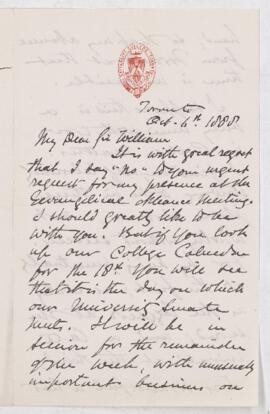 Toronto
Oct. 6th 1888
My Dear Sir William
It is with great regret
that I say "No" to your urgent
request for my presence at the
Evangelical Alliance Meeting.
I should greatly like to be
with you. But if you look
up our College Calendar
for the 18th you will see
that it is the day on which
our University Senate
meets. It will be in
session for the remainder
of the week, with unusually
important business on